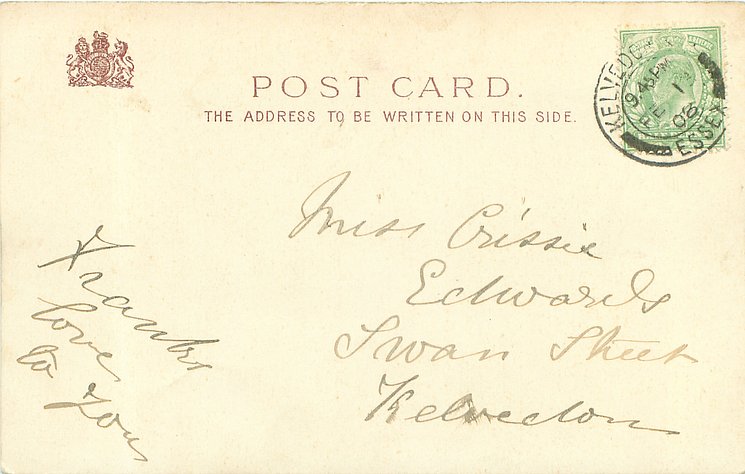 POST CARD.
THE ADDRESS TO BE WRITTEN ON THIS SIDE.
KELVEDON
9.45 PM
FE 1
08
ESSEX
Miss Crissie
Edwards
Swan Street
Kelvedon
Franks
love
to you